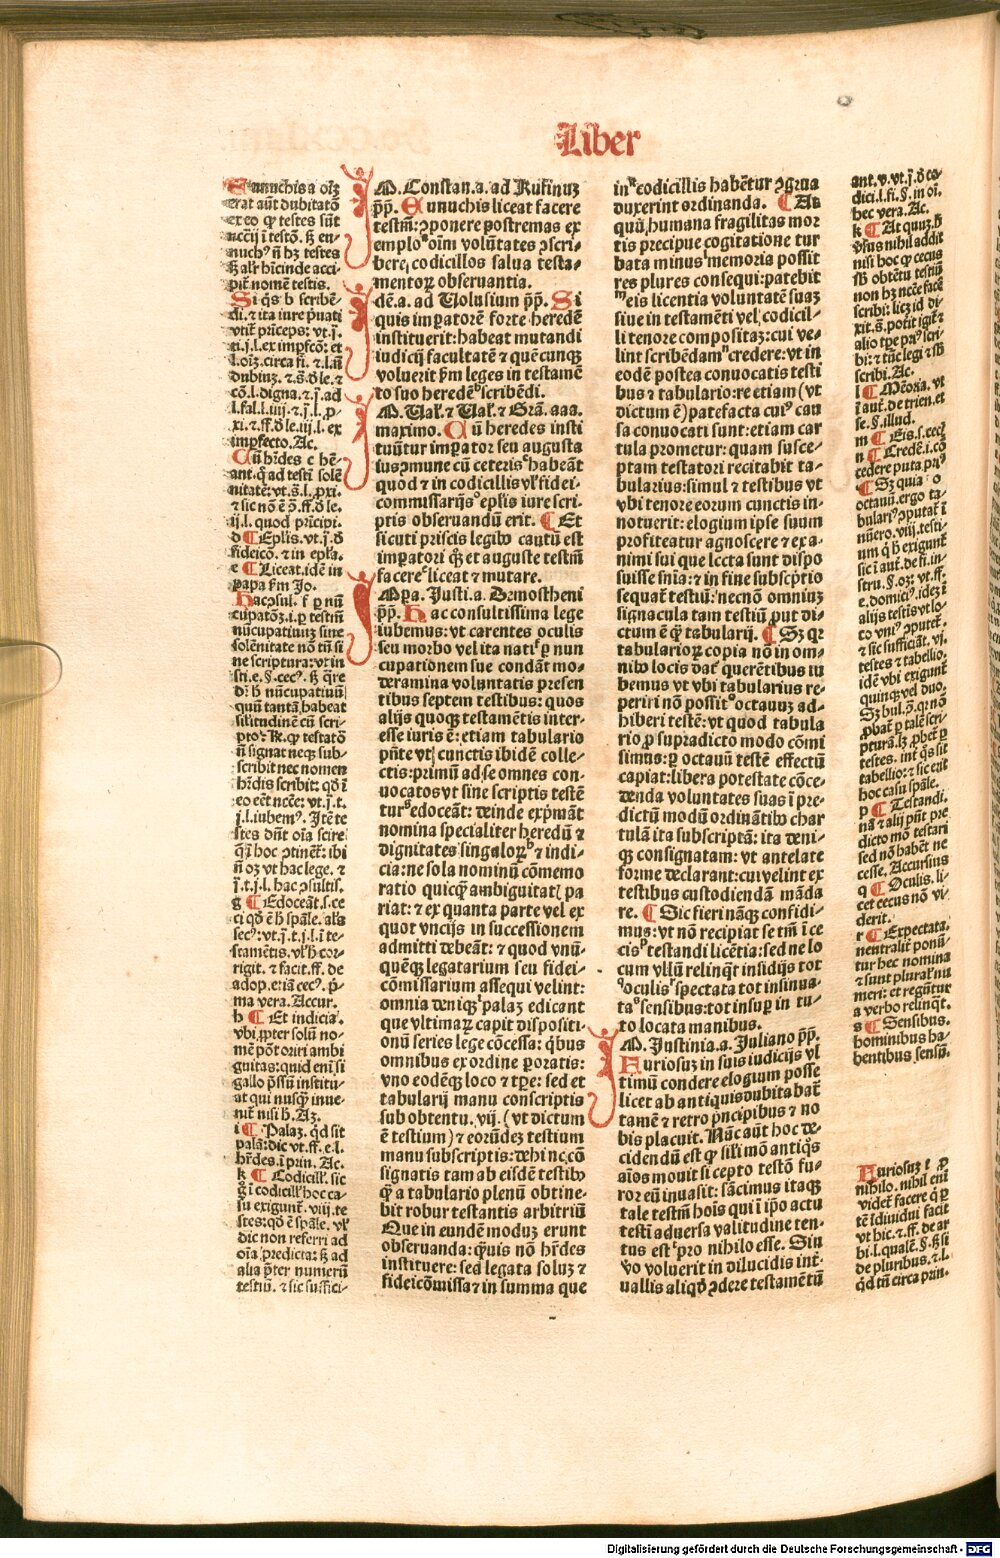 Liber
Eunuchis a oīƺ
erat aūt dubitatō
ex eo ꝙ testes sūt
nēcij ī testō. ß en
nuchꝰ ñ hƺ testes
ß alr̄ hīcinde acci-
pit̄ nomē testis.
Si q̄s b scribē-
di. ⁊ ita iure p̄uati
vtit̄ prīceps: vt .j.
ti.j.l.ex impfcō: et
l.oīƺ.circa fi. ⁊ l.iī
dubiuƺ. ⁊.s̄.ð le. ⁊
cō.l.digna.⁊.j.ad
l.fal.l.iiij.⁊.j.l.p-
xi.⁊.ff.ð le.iij.l.ex
impfecto. Ac.
Cū hr̄des c hē-
ant.q̄ ad testī solē
nitatē: vt.s̄.l.ꝓxi.
⁊ sic nō ē ↄ̄.ff.ð le.
ij.l. quod prīcipi.
d ¶ Epl̄is. vt.j.ð
fideicō. ⁊ in epl̄a.
e ¶ Liceat. idē in
papa ẜm Jo.
Hac ↄsul. f ꝑ nū
cupatōƺ.i.ꝑ testm̄
nūcupatiuuƺ sine
solēnitate nō tn̄ si
ne scriptura: vt in
sti.e.§.cecꝰ. ß q̄re
dr̄ h nūcupatiuū
quū tantā habeat
sīlitudinē cū scri-
pto: R.ꝙ testatō
ñ signat neqƺ sub-
scribit nec nomen
hr̄dis scribit: qð ī
eo eēt ncc̄e: vt.j.t.
j.l.iubemꝰ. Jtē te
stes dn̄t oīa scire
q̄ ī hoc ↄtinēt̄: ibi
ñ oƺ vt hac lege. ⁊
j.t.j.l. hac ↄsultis.
g ¶ Edoceāt.s.ce
ci qð ē h spāle. al̄s
secꝰ: vt.j.t.j.l.ī te-
stamētis. vl̄ h cor-
rigit. ⁊ facit.ff. de
adop.etiā cecꝰ. p̄-
ma vera. Accur.
h ¶ Et indicia.
vbi ꝓpter solū no-
mē pōt oriri ambi
guitas: quid eni si
gallo p̄ssn̄ institu-
at qui nusq̄ inue-
nit̄ nisi h. Aƺ.
i ¶ Palaƺ. q̄d sit
palā: dic vt.ff.e.l.
hr̄des.ī prin. Ac.
k ¶ Codicill̄. sic
g̊ ī codicill̄ hoc ca-
su exigunt̄. viij. te
stes: qð ē spāle. vl̄
dic non referri ad
oīa predicta: ß ad
alia p̄ter numerū
testiū. ⁊ sic suffici-
JM. Constan. a. ad Rufinuƺ
p̄p̄. Eunuchis liceat facere
testm̄: ↄponere postremas ex
emplo oīm volūtates ↄscri-
bere, codicillos salua testa-
mentoꝝ obseruantia.
Jdē. a. ad Uolusium p̄p̄. Si
quis imꝑatorē forte heredē
instituerit: habeat mutandi
iudicij facultatē ⁊ quēcunqƺ
voluerit ẜm leges in testamē
to suo heredē scribēdi.
JM. Ual̄. ⁊ Ual̄. ⁊ Grā. aaa.
maximo. Cū heredes insti
tuūtur imꝑator seu augusta
iusↄmune cū ceteris habeāt
quod ⁊ in codicillis vl̄ fidei-
commissarijs epl̄is iure scri-
ptis obseruandū erit. ¶ Et
sicuti priscis legibꝰ cautū est
imꝑatori q̄ƺ et auguste testm̄
facere liceat ⁊ mutare.
JMꝑa. Justi. a. Demostheni
p̄p̄. Hac consultissima lege
iubemus: vt carentes oculis
seu morbo vel ita nati ꝑ nun
cupationem sue condāt mo-
deramina voluntatis presen
tibus septem testibus: quos
alijs quoqƺ testamētis inter-
esse iuris ē: etiam tabulario
pn̄te vt cunctis ibidē colle-
ctis: primū ad se omnes con-
uocatos vt sine scriptis testē
turꝰ edoceāt: deinde exp̄māt
nomina specialiter heredū ⁊
dignitates singuloꝝ ⁊ indi-
cia: ne sola nominū cōmemo
ratio quicq̄ƺ ambiguitatꝭ pa
riat: ⁊ ex quanta parte vel ex
quot vncijs in successionem
admitti debeāt: ⁊ quod vnū-
quēqƺ legatarium seu fidei-
cōmissarium assequi velint:
omnia deniqƺ palaƺ edicant
que vltimaꝝ capit dispositi-
onū series lege cōcessa: q̄bus
omnibus ex ordine ꝑoratis:
vno eodēqƺ loco ⁊ tꝑe: sed et
tabularij manu conscriptis
sub obtentu. vij. ( vt dictum
ē testium ) ⁊ eorūdeƺ testium
manu subscriptis: dehinc cō
signatis tam ab eisdē testibꝰ
q̄ƺ a tabulario plenū obtine-
bit robur testantis arbitriū
Que in eundē moduƺ erunt
obseruanda: q̄uis nō hr̄des
instituere: sed legata soluƺ ⁊
fideicōmissa ⁊ in summa que
in codicillis habētur ↄgrua
duxerint ordinanda. ¶ At
quū humana fragilitas mor
tis precipue cogitatione tur
bata minus memoria possit
res plures consequi: patebit
eis licentia voluntatē suaƺ
siue in testamēti vel codicil-
li tenore compositaƺ: cui ve-
lint scribēdam credere: vt in
eodē postea conuocatis testi
bus ⁊ tabulario: re etiam (vt
dictum ē) patefacta cuiꝰ cau
sa conuocati sunt: etiam car
tula prometur: quam susce-
ptam testatori recitabit ta-
bularius: simul ⁊ testibus vt
vbi tenore eorum cunctis in-
notuerit: elogium ipse suum
profiteatur agnoscere ⁊ ex a-
nimi sui que lecta sunt dispo
suisse sn̄ia: ⁊ in fine subscp̄tio
sequat̄ testiū: necnō omniuƺ
signacula tam testiū put di-
ctum ē q̄ƺ tabularij. ¶ Sƺ qꝛ
tabularioꝝ copia nō in om-
nibꝰ locis dat̄ querētibus iu
bemus vt vbi tabularius re-
periri nō possit octauuƺ ad-
hiberi testē: vt quod tabula
rio ꝓ supradicto modo cōmi
simus: ꝑ octauū testē effectū
capiat: libera potestate cōce-
denda voluntates suas ī pre-
dictū modū ordinātibꝰ char
tulā ita subscriptā: ita deni-
qƺ consignatam: vt antelate
forme declarant: cui velint ex
testibus custodiendā māda
re. ¶ Sic fieri nāqƺ confidi-
mus: vt nō recipiat se tm̄ ī ce
cis testandi licētia: sed ne lo
cum vllū relinq̄t insidijs tot
oculis spectata tot insinua-
ta sensibus: tot insuꝑ in tu-
to locata manibus.
JM. Justinia. a. Juliano p̄p̄.
Furiosuƺ in suis iudicijs vl̄
timū condere elogium posse
licet ab antiquis dubitabat̄
tamē ⁊ retro p̄ncipibus ⁊ no
bis placuit. Nāc aūt hoc de-
cidendū est ꝙ sīli mō antiq̄s
aīos mouit si cepto testō fu-
ror eū inuasit: sācimus itaqƺ
tale testm̄ hoīs qui ī ip̄o actu
testī aduersa valitudine ten-
tus est pro nihilo esse. Sin
vo voluerit in dilucidis int̄-
uallis aliqð ↄdere testamētū
ant.v. vt.j.ð co-
dici.l.fi.§.in oī.
hec vera. Ac.
k ¶ At quuƺ. h
vsus nihil addit
nisi hoc ꝙ cecus
sb̄ obtētu testiū
non hƺ nccē facē
scribi: licƺ id di-
xit.s̄. potit igit̄ ⁊
alio tꝑe priꝰ scri
bi: ⁊ tūc legi ⁊ sb̄
scribi. Ac.
l ¶ Mēoria. vt
ī aut̄. de trien. et
se. §. illud.
m ¶ Eis. s. cecꝭ
n ¶ Credē. i. cō
cedere puta priꝰ
¶ Sƺ quia o
octauū. ergo ta-
bulariꝰ ↄputat̄ ī
nūero. viij. testi-
um q̄ h exigunt̄
sic ī aut̄. de fi. in-
stru. §. oƺ: vt. ff.
e. domiciꝰ. ideƺ ī
alijs testis vt lo-
co vniꝰ ↄputet̄.
⁊ sic sufficiāt. vj.
testes ⁊ tabellio.
idē vbi exigunt̄
quinqƺ vel duo.
Sƺ bul. ↄ̄. qꝛ nō
ꝓbat̄ ꝑ talē scri
pturā. lƺ ꝓbet̄ ꝑ
testes. int̄ q̄s sit
tabellio: ⁊ sic erit
hoc casu spāle.
p ¶ Testandi.
nā ⁊ alij pn̄t pre
dicto mō testari
sed nō habēt ne
cesse. Accursius
q ¶ Oculis. li-
cet cecus nō vi-
derit.
r ¶ Expectata.
neutralit̄ poni-
tur hec nomina
⁊ sunt plural̄ nu
meri: et regūtur
a verbo relinq̄t.
s ¶ Sensibus.
hominibus ha-
bentibus sensū.
Furiosuƺ t ꝓ
nihilo. nihil enī
videt̄ facere q̄ ꝑ
tē īdiuidui facit
vt hic. ⁊. ff. de ar
bi. l. qualē. §. ß si
de pluribus. ⁊. l.
q̄d tn̄ circa prin.
Digitalisierung gefördert durch die Deutsche Forschungsgemeinschaft - DFG